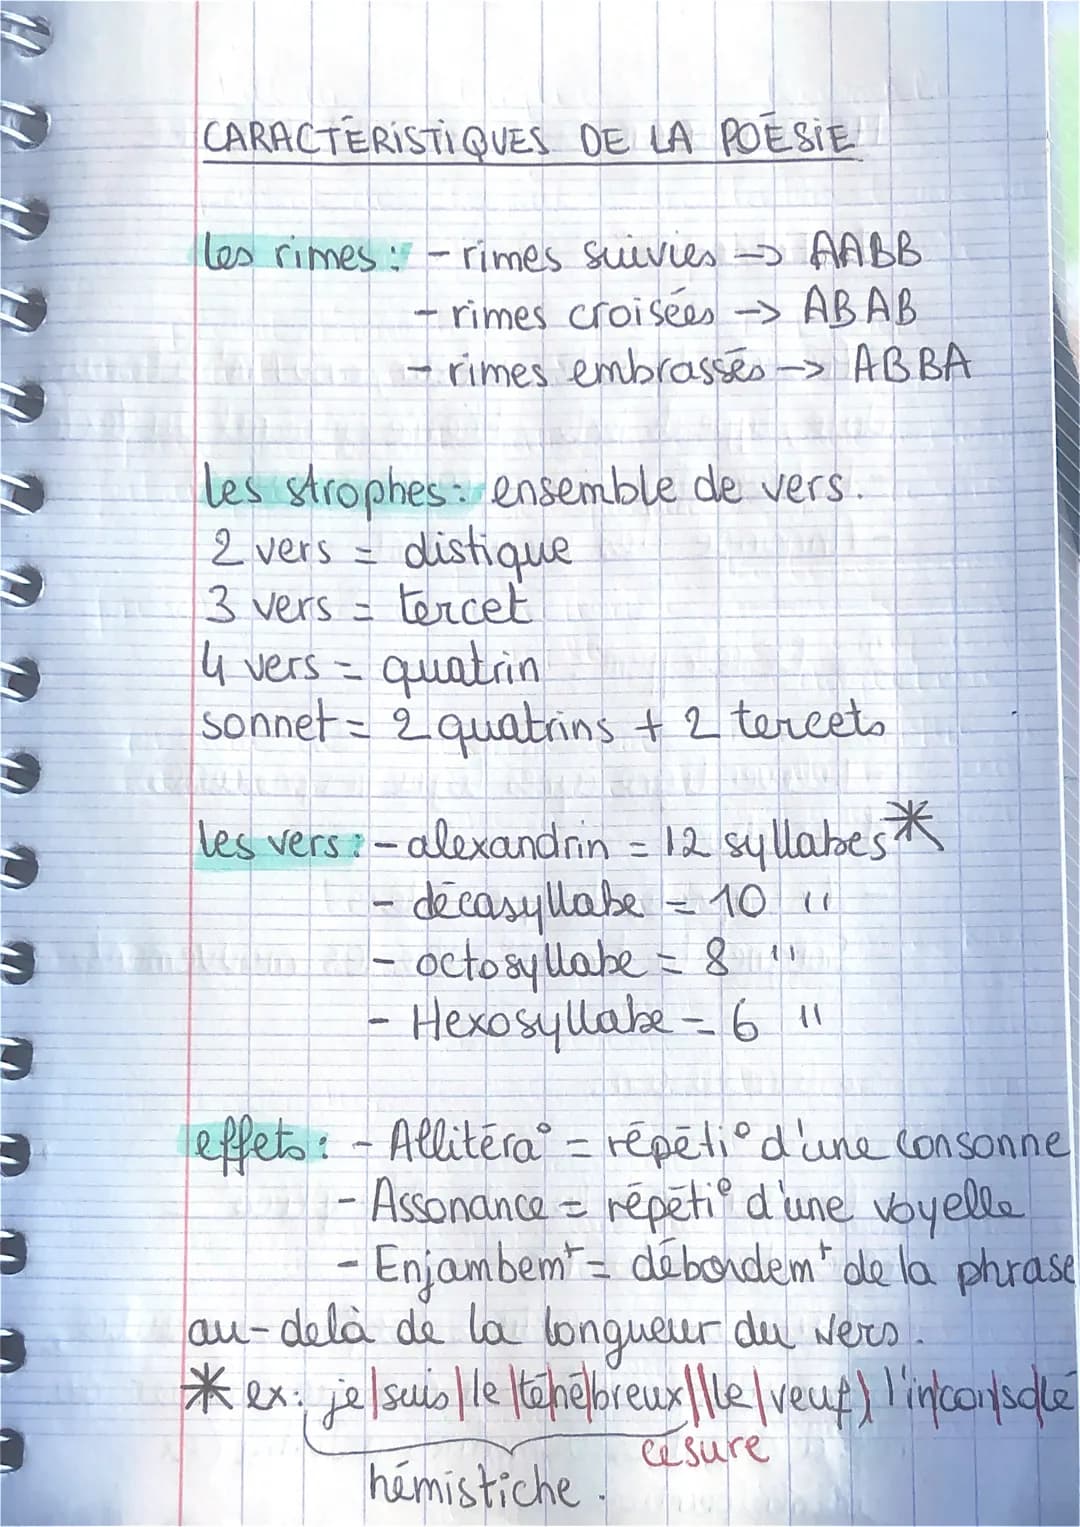 CARACTÉRISTIQUES DE LA POÉSIE
les rimes : - rimes suivies -> AABB
- rimes croisées -> ABAB
- rimes embrassés -> ABBA
les strophes : ensemble de vers.
2 vers = distique
3 vers = tercet
4 vers = quatrin
sonnet = 2 quatrins + 2 tercets
les vers : - alexandrin = 12 syllabes *
- décasyllabe = 10 "
- octosyllabe = 8 "
- Hexosyllabe = 6 "
effets : - Allitéra° = répéti° d'une consonne
- Assonance = répéti° d'une voyelle
- Enjambemt = débordemt de la phrase
au-delà de la longueur du vers.
* ex: je|suis|le|téné|breux||le|veuf,|l'in|con|solé
césure
hémistiche.